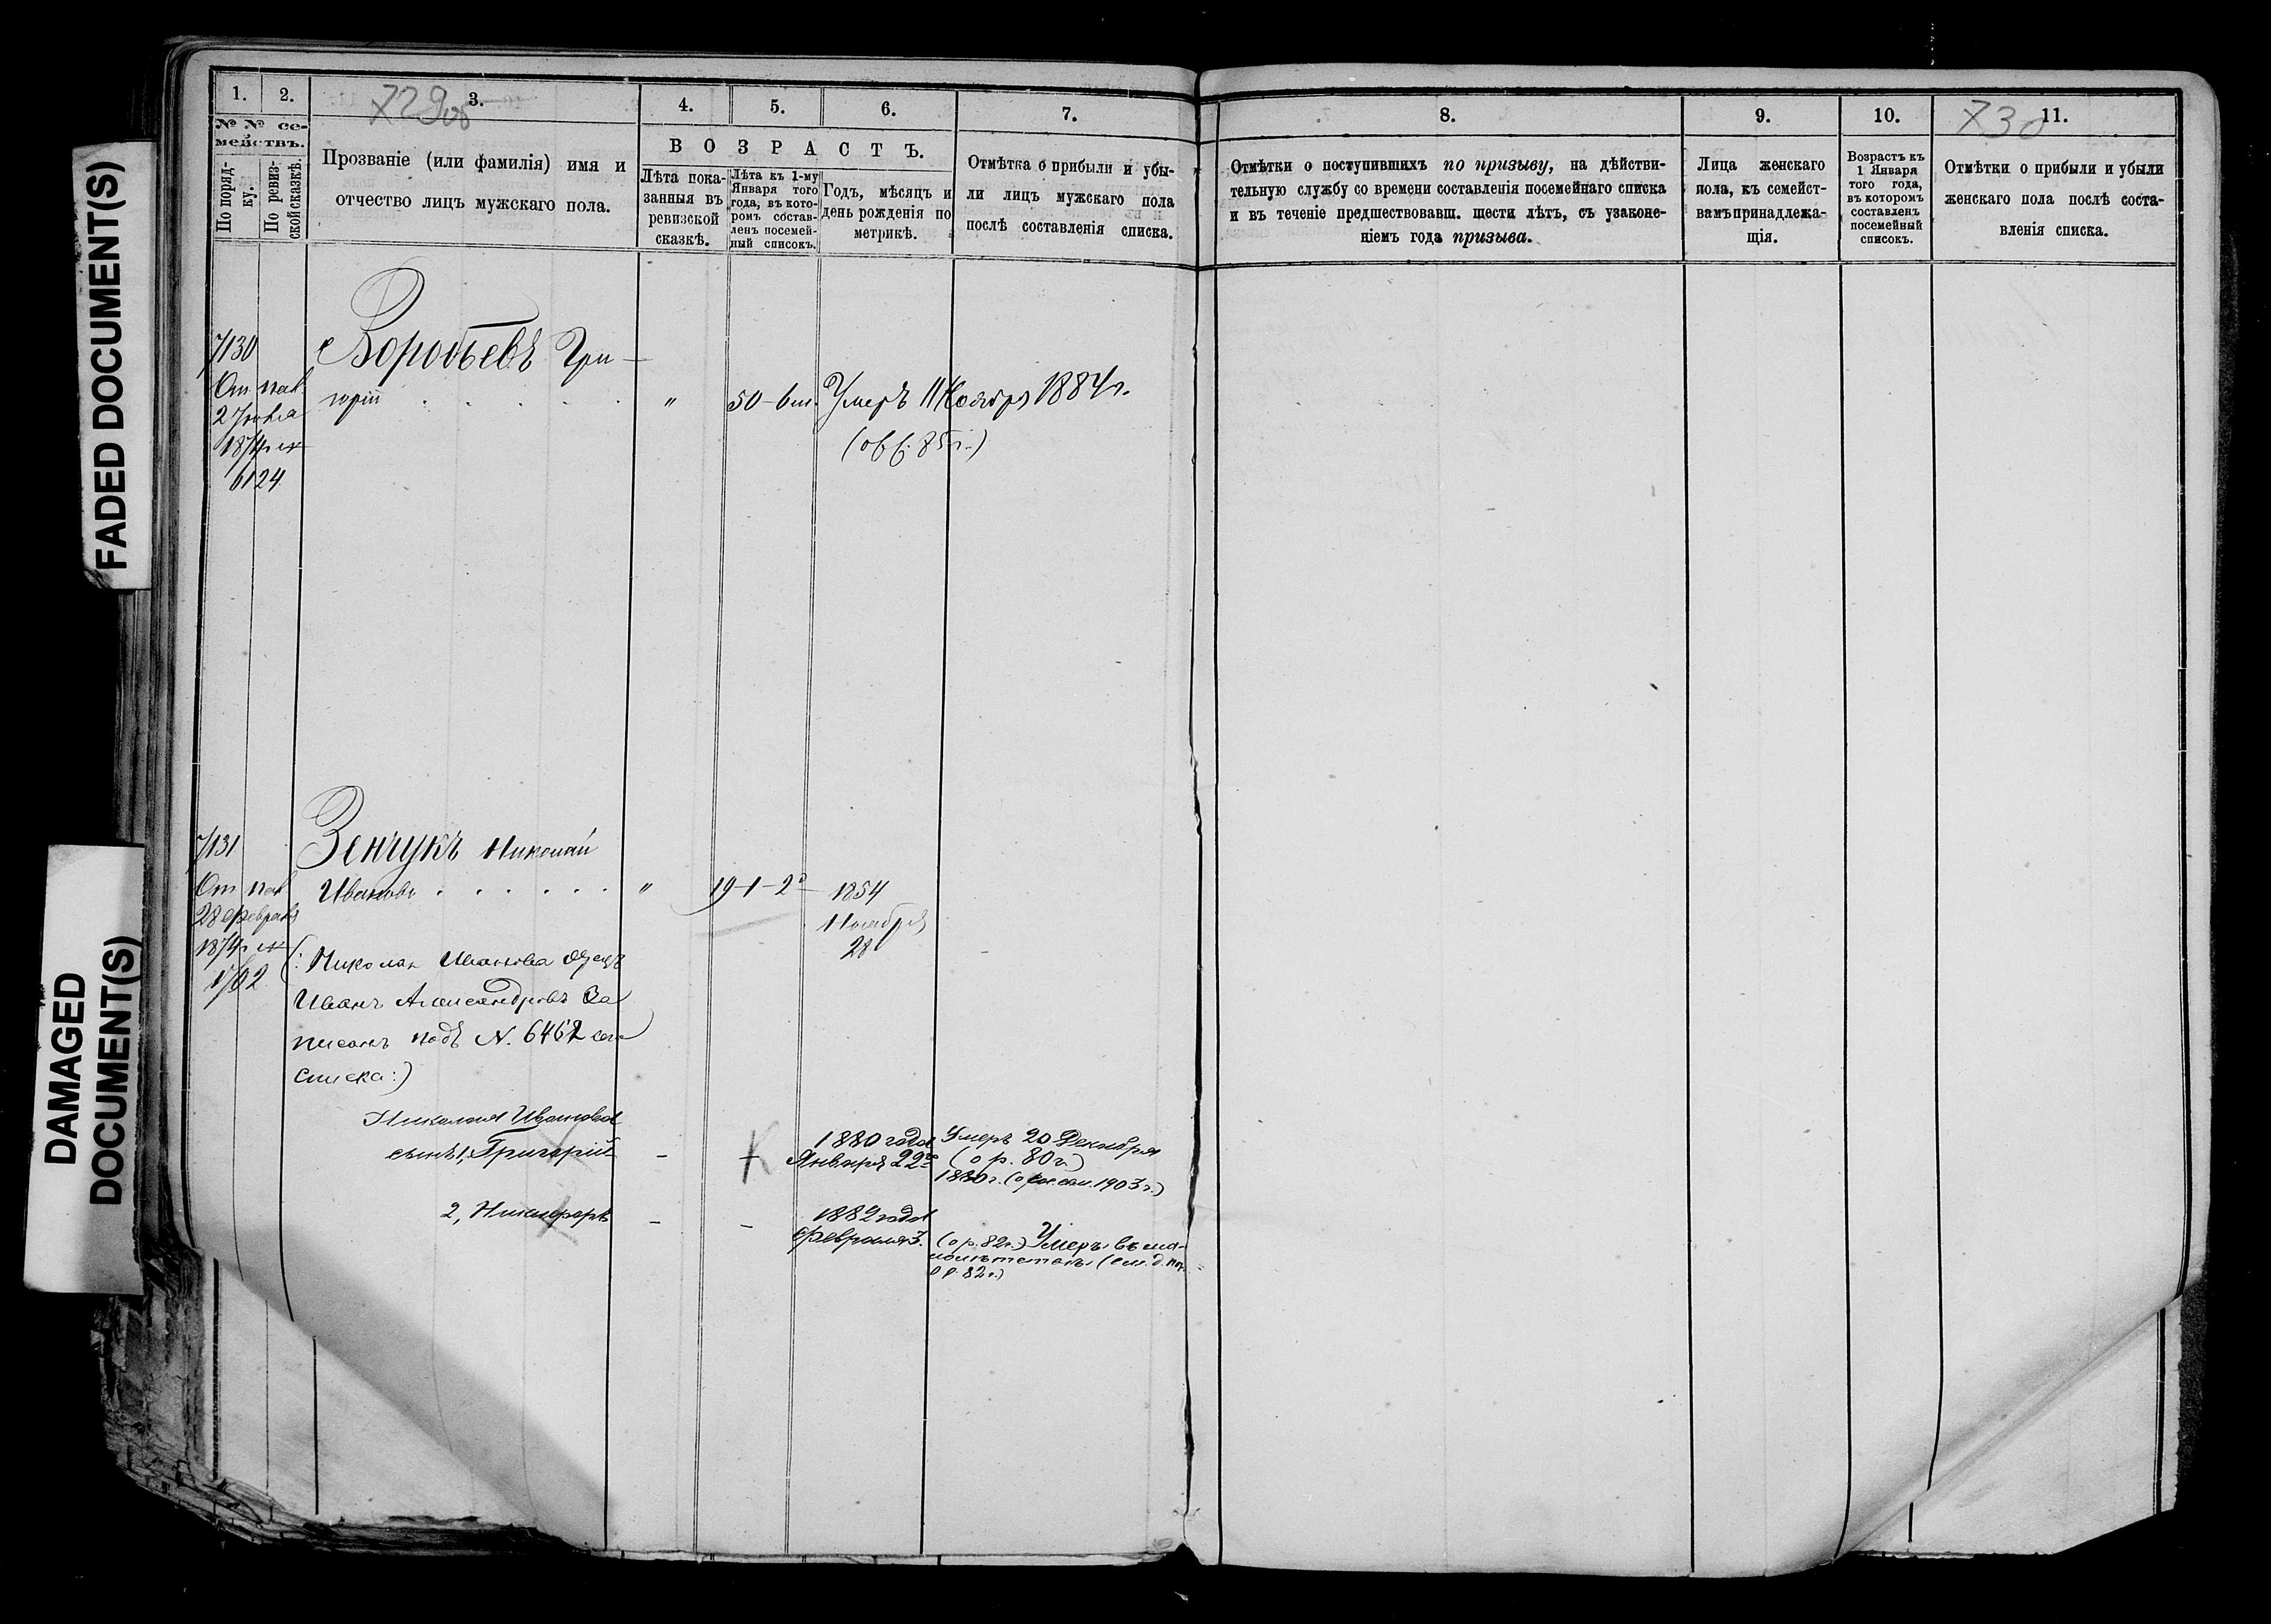 FADED DOCUMENT(S)
DAMAGED
DOCUMENT(S)
729об
730
1.
2.
3.
4.
5.
6.
7.
8.
9.
10.
11.
№ № се-
мействъ.
По поряд-
ку.
По ревиз-
ской сказкѣ.
Прозваніе (или фамилія) имя и
отчество лицъ мужскаго пола.
ВОЗРАСТЪ.
Лѣта пока-
занныя въ
ревизской
сказкѣ.
Лѣта къ 1-му
Января того
года, въ кото-
ромъ состав-
ленъ посемей-
ный списокъ.
Годъ, мѣсяцъ и
день рожденія по
метрикѣ.
Отмѣтка о прибыли и убы-
ли лицъ мужскаго пола
послѣ составленія списка.
Отмѣтки о поступившихъ по призыву, на дѣйстви-
тельную службу со времени составленія посемейнаго списка
и въ теченіе предшествовавш. шести лѣтъ, съ узаконе-
ніемъ года призыва.
Лица женскаго
пола, къ семейст-
вамъ принадлежа-
щія.
Возрастъ къ
1 Января
того года,
въ которомъ
составленъ
посемейный
списокъ.
Отмѣтки о прибыли и убыли
женскаго пола послѣ соста-
вленія списка.
7130
Воробьевъ Гри-
горій
" 50-6м. Умеръ 11 Ноября 1884г.
(о 85г.)
2
1874г №
6124
7131
Зенчукъ Николай
Ивановъ " 19-1-2 1854
Ноября
28
28 Февраля
1874г №
1702
(: Николая Иванова отецъ
Иванъ Александровъ За
писанъ подъ N. 6462 сего
списка:)
Николая Иванова
сынъ 1, Григорій - - 1880 года
Января 22го
Умеръ 20 Декабря
(о р. 80г.)
1880г. (1903г.)
2, Никифоръ - - 1882 года
Февраля 3.
(о р. 82г.) Умеръ въ ма-
лолѣтствѣ (
о р. 82г.)